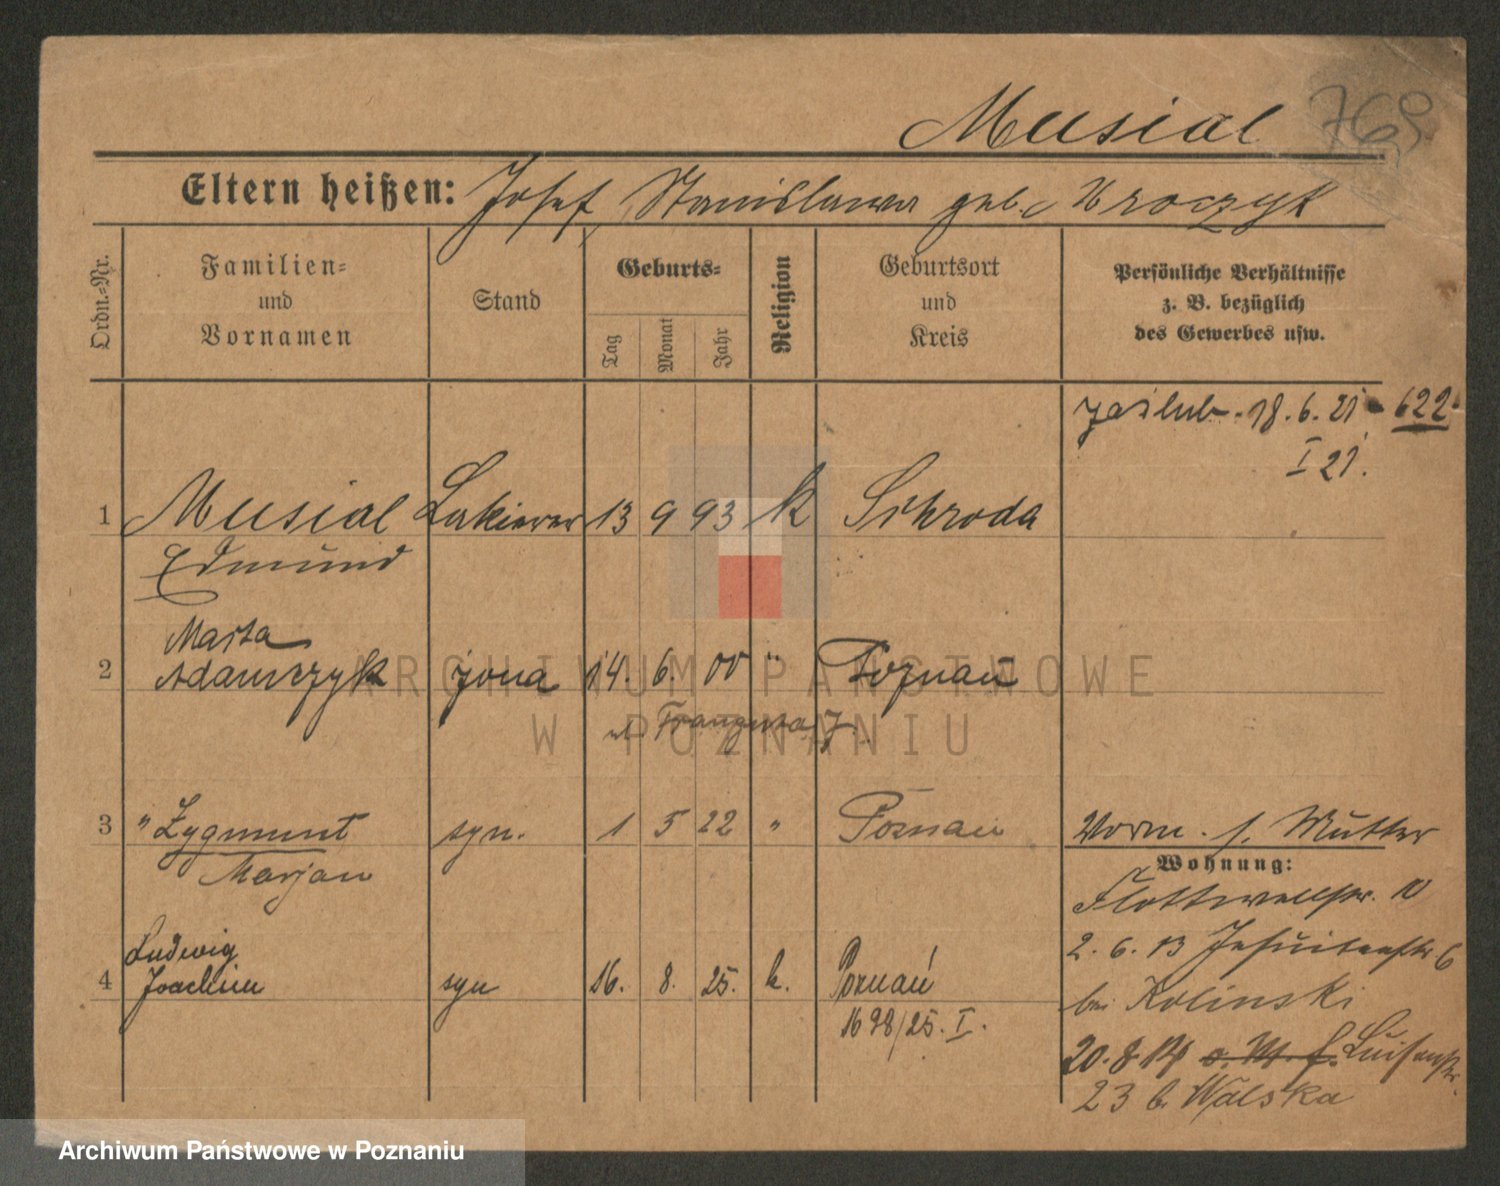 Musial 769
Eltern heißen: Josef, Stanislawa geb. Wroczyk
Ordn.-Nr.
Familien-
und
Vornamen
Stand
Geburts-
Tag
Monat
Jahr
Religion
Geburtsort
und
Kreis
Persönliche Verhältnisse
z. B. bezüglich
des Gewerbes usw.
zaślub. 18.6.21 - 622
I 21.
1 Musial Lakierer 13 9 93 k Schroda
Edmund
Marta
2 Adamczyk żona 14. 6. 00 " Poznań
Franciszka
3 " Zygmunt syn. 1 5 22 " Poznań
Marjan
Vorm. s. Mutter
Wohnung:
Flottwellstr. 10
2.6.13 Jesuitenstr 6
bei Kolinski
20.8.14 Luisenstr.
23 b. Walska
Ludwig
4 Joachim syn 16. 8. 25. k. Poznań
1698/25. I.
ARCHIWUM PAŃSTWOWE
W POZNANIU
Archiwum Państwowe w Poznaniu